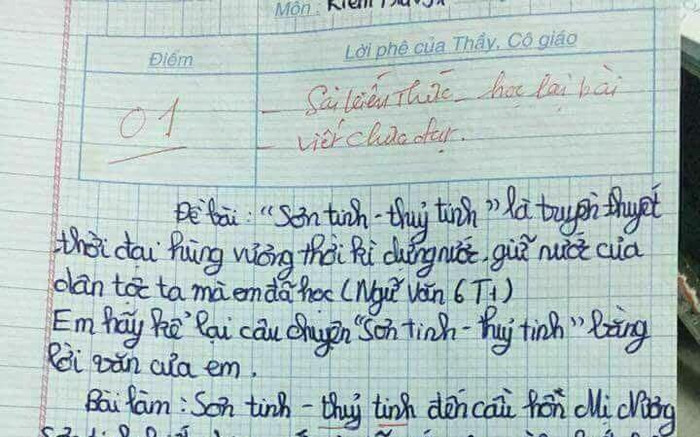 Môn: Kiểm tra
Điểm
Lời phê của Thầy, Cô giáo
01
- Sai kiến thức - học lại bài
- viết chưa đạt.
Đề bài: "Sơn tinh - thuỷ tinh" là truyền thuyết
thời đại hùng vương thời kì dựng nước, giữ nước của
dân tộc ta mà em đã học (Ngữ văn 6 T1)
Em hãy kể lại câu chuyện "Sơn tinh - thuỷ tinh" bằng
lời văn của em.
Bài làm: Sơn tinh - thuỷ tinh đến cầu hôn Mị Nương